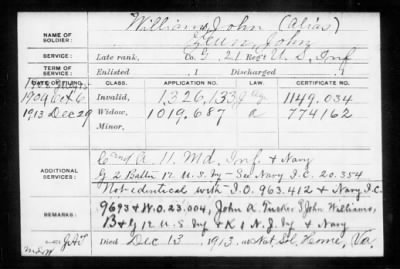 Williams, John (Alias)
NAME OF SOLDIER: John
SERVICE: Late rank, Co. G, 21 Reg't U.S. Inf
TERM OF SERVICE: Enlisted 1 Discharged 1
DATE OF FILING. CLASS. APPLICATION NO. CERTIFICATE NO.
1909 Oct 6 Invalid, 1,326,133 1149.034
1913 Dec 29 Widow, 1019,687 a 774162
Minor,
A. 11. Md. Inf. & Navy
ADDITIONAL SERVICES: G 2 Batt'n 12 U.S. Inf - See Navy I.C. 20.354
Not identical with I.O. 963.412 & Navy I.C.
REMARKS: 9693 & W.O. 23,004, John A. Tucker & John Williams,
B & G 12 U.S. Inf & K 1 N.J. Inf & Navy
Died Dec 13, 1913, at Nat. Sl. Home, Va.